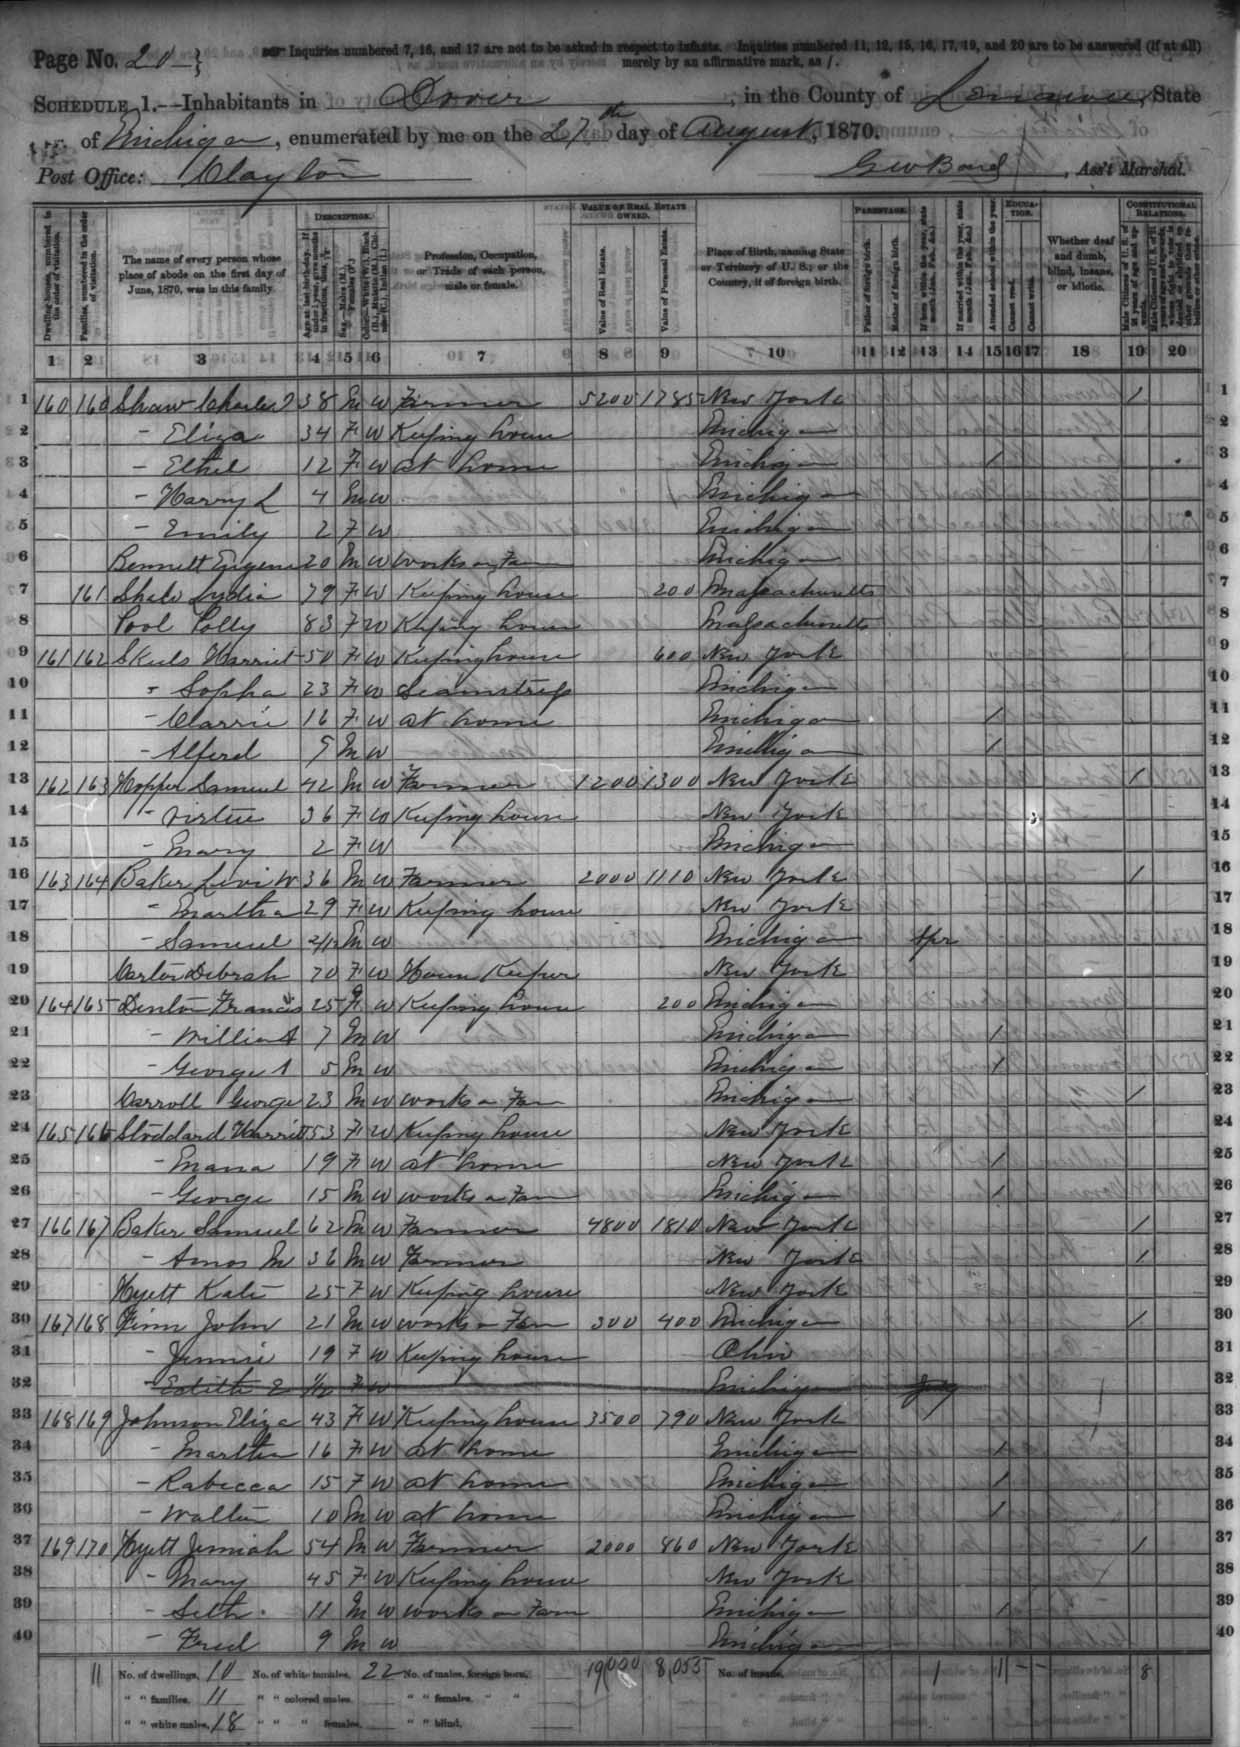 Page No. 20
Inquiries numbered 7, 16, and 17 are not to be asked in respect to infants. Inquiries numbered 11, 12, 15, 16, 17, 19, and 20 are to be answered (if at all)
merely by an affirmative mark, as /.
SCHEDULE 1.—Inhabitants in Dover, in the County of Lenawee, State
of Michigan, enumerated by me on the 27th day of August, 1870.
Post Office: Clayton Geo Bond, Ass't Marshal.
DESCRIPTION. VALUE OF REAL ESTATE OWNED. PARENTAGE. EDUCATION. CONSTITUTIONAL RELATIONS.
Dwelling-houses, numbered in the order of visitation.
Families, numbered in the order of visitation.
The name of every person whose place of abode on the first day of June, 1870, was in this family.
Profession, Occupation, or Trade of each person, male or female.
Value of Real Estate.
Value of Personal Estate.
Place of Birth, naming State or Territory of U. S.; or the Country, if of foreign birth.
Father of foreign birth.
Mother of foreign birth.
Attended school within the year.
Cannot read.
Cannot write.
Whether deaf and dumb, blind, insane, or idiotic.
1 2 3 4 5 6 7 8 9 10 11 12 13 14 15 16 17 18 19 20
1 160 160 Shaw Charles 38 M W Farmer 5200 1785 New York / 1
2 – Eliza 34 F W Keeping house Michigan 2
3 – Ethel 12 F W at home Michigan / 3
4 – Harry L 4 M W Michigan 4
5 – Emily 2 F W Michigan 5
6 Bennett Eugene 20 M W works on Farm Michigan 6
7 161 Lydia 79 F W Keeping house 200 Massachusetts 7
8 Pool Polly 83 F W Keeping house Massachusetts 8
9 161 162 Harriet 50 F W Keeping house 600 New York 9
10 – Sopha 23 F W Seamstress Michigan 10
11 – Carrie 16 F W at home Michigan / 11
12 – Alferd M W Michigan / 12
13 162 163 Hopper Samuel 42 M W Farmer 1200 1300 New York / 13
14 – Virtue 36 F W Keeping house New York 14
15 – Mary 2 F W Michigan 15
16 163 164 Baker Levi W 36 M W Farmer 2000 1110 New York / 16
17 – Martha 29 F W Keeping house New York 17
18 – Samuel 2/12 M W Michigan Apr 18
19 Debrah 70 F W House Keeper New York 19
20 164 165 Denton Frances 25 F W Keeping house 200 Michigan 20
21 – Willis A 7 M W Michigan / 21
22 – George 5 M W Michigan / 22
23 Carroll George 23 M W works on Farm Michigan / 23
24 165 166 Stoddard Harriett 53 F W Keeping house New York 24
25 – 19 F W at home New York / 25
26 – George 15 M W works on Farm Michigan / 26
27 166 167 Baker Samuel 62 M W Farmer 4800 1810 New York / 27
28 – Amos M 36 M W Farmer New York / 28
29 Hyett Kate 25 F W Keeping house New York 29
30 167 168 Finn John 21 M W works on Farm 300 400 Michigan / 30
31 – Jennie 19 F W Keeping house Ohio 31
32 – Edith E F W Michigan 32
33 168 169 Johnson Eliza 43 F W Keeping house 3500 790 New York 33
34 – Martha 16 F W at home Michigan / 34
35 – Rabecca 15 F W at home Michigan / 35
36 – Walter 10 M W at home Michigan / 36
37 169 170 Hyett Jemiah 54 M W Farmer 2000 860 New York / 37
38 – Mary 45 F W Keeping house New York 38
39 – Seth 11 M W works on Farm Michigan / 39
40 – Fred 9 M W Michigan 40
11 No. of dwellings, 10 No. of white females, 22 No. of males, foreign born, 19000 8,055 No. of insane, 1 11 – – 8
" " families, 11 " " colored males, " " females, " "
" " white males, 18 " " " females, " " blind,